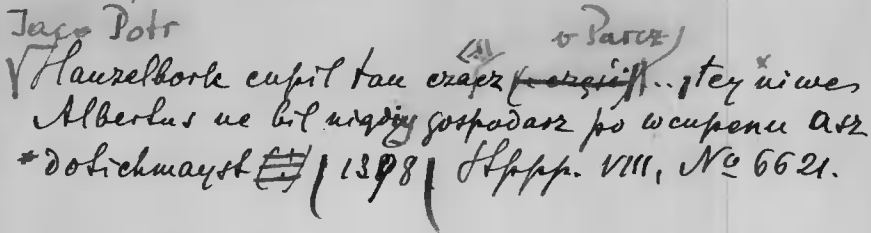 Jaco Potr
v Parcz)
√Hanzelbork cupil tan czacz (= część) .. stey niwes
Albertus ne bil nigdiy gospodarz po wcupenu asz
* dotichmayst [!] (1398) Hppp. VIII, Nº 6621.